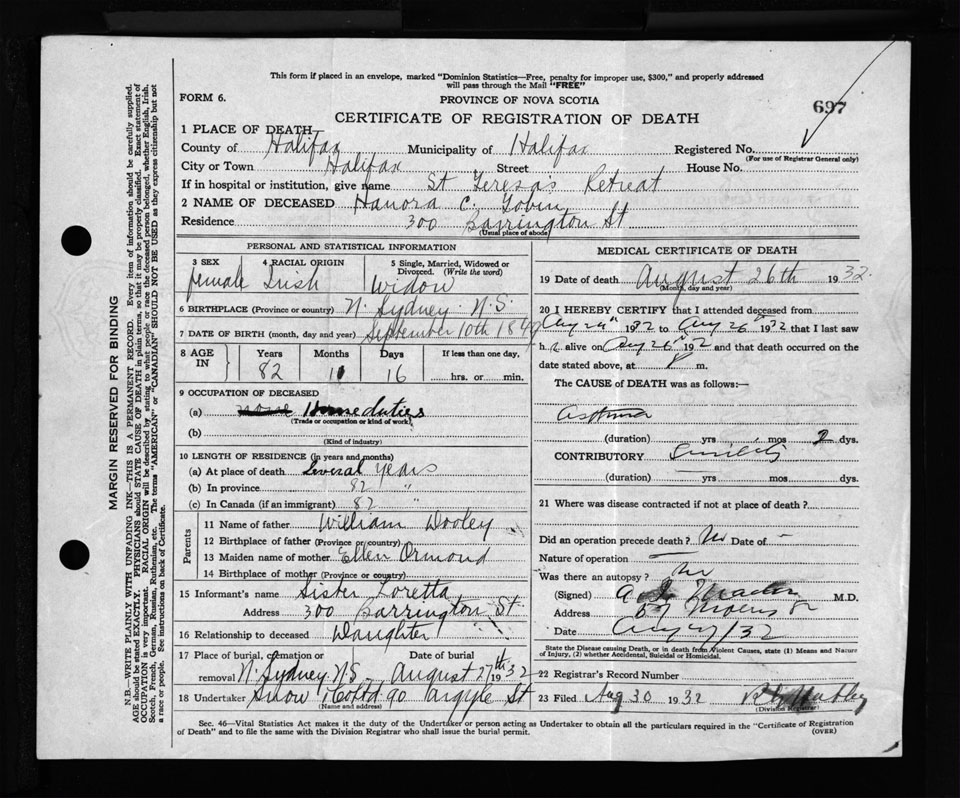 This form if placed in an envelope, marked "Dominion Statistics—Free, penalty for improper use, $300," and properly addressed
will pass through the Mail "FREE"
FORM 6.
PROVINCE OF NOVA SCOTIA
697
CERTIFICATE OF REGISTRATION OF DEATH
1 PLACE OF DEATH
County of Halifax Municipality of Halifax Registered No.
(For use of Registrar General only)
City or Town Halifax Street House No.
If in hospital or institution, give name St Teresa's Retreat
2 NAME OF DECEASED Hanora C. Tobin
Residence 300 Barrington St
(Usual place of abode)
PERSONAL AND STATISTICAL INFORMATION
3 SEX 4 RACIAL ORIGIN 5 Single, Married, Widowed or
Divorced. (Write the word)
female Irish Widow
6 BIRTHPLACE (Province or country) N. Sydney. N.S.
7 DATE OF BIRTH (month, day and year) September 10th 1849
8 AGE IN Years Months Days If less than one day,
82 11 16 hrs. or min.
9 OCCUPATION OF DECEASED
(a) Home duties
(Trade or occupation or kind of work)
(b)
(Kind of industry)
10 LENGTH OF RESIDENCE (in years and months)
(a) At place of death Several years
(b) In province 82 "
(c) In Canada (if an immigrant) 82 "
Parents
11 Name of father William Dooley
12 Birthplace of father (Province or country)
13 Maiden name of mother Ellen Ormond
14 Birthplace of mother (Province or country)
15 Informant's name Sister Loretta
Address 300 Barrington St.
16 Relationship to deceased Daughter
17 Place of burial, cremation or Date of burial
removal N. Sydney. N.S. August 27th 1932
18 Undertaker Snow & Co Ltd 90 Argyle St
(Name and address)
MEDICAL CERTIFICATE OF DEATH
19 Date of death August 26th 1932.
(Month, day and year)
20 I HEREBY CERTIFY that I attended deceased from
1932 to Aug 26th 1932 that I last saw
h alive on Aug 26th 1932 and that death occurred on the
date stated above, at m.
The CAUSE of DEATH was as follows:
Asthma
(duration) yrs mos 2 dys.
CONTRIBUTORY Senility
(duration) yrs mos. dys.
21 Where was disease contracted if not at place of death?
Did an operation precede death? No Date of -
Nature of operation —
Was there an autopsy? No
(Signed) M.D.
Address
Date Aug 32
State the Disease causing Death, or in death from Violent Causes, state (1) Means and Nature
of Injury, (2) whether Accidental, Suicidal or Homicidal.
22 Registrar's Record Number
23 Filed Aug 30 1932
(Division Registrar)
Sec. 46—Vital Statistics Act makes it the duty of the Undertaker or person acting as Undertaker to obtain all the particulars required in the "Certificate of Registration
of Death" and to file the same with the Division Registrar who shall issue the burial permit.
(OVER)
MARGIN RESERVED FOR BINDING
N.B.—WRITE PLAINLY WITH UNFADING INK—THIS IS A PERMANENT RECORD. Every item of information should be carefully supplied.
AGE should be stated EXACTLY. PHYSICIANS should STATE CAUSE OF DEATH in plain terms, so that it may be properly classified. Exact statement of
OCCUPATION is very important. RACIAL ORIGIN will be described by stating to what people or race the deceased person belonged, whether English, Irish,
Scotch, French, German, Russian, Ruthenian, etc. The terms "AMERICAN" or "CANADIAN" SHOULD NOT BE USED as they express citizenship but not
a race or people. See instructions on back of Certificate.